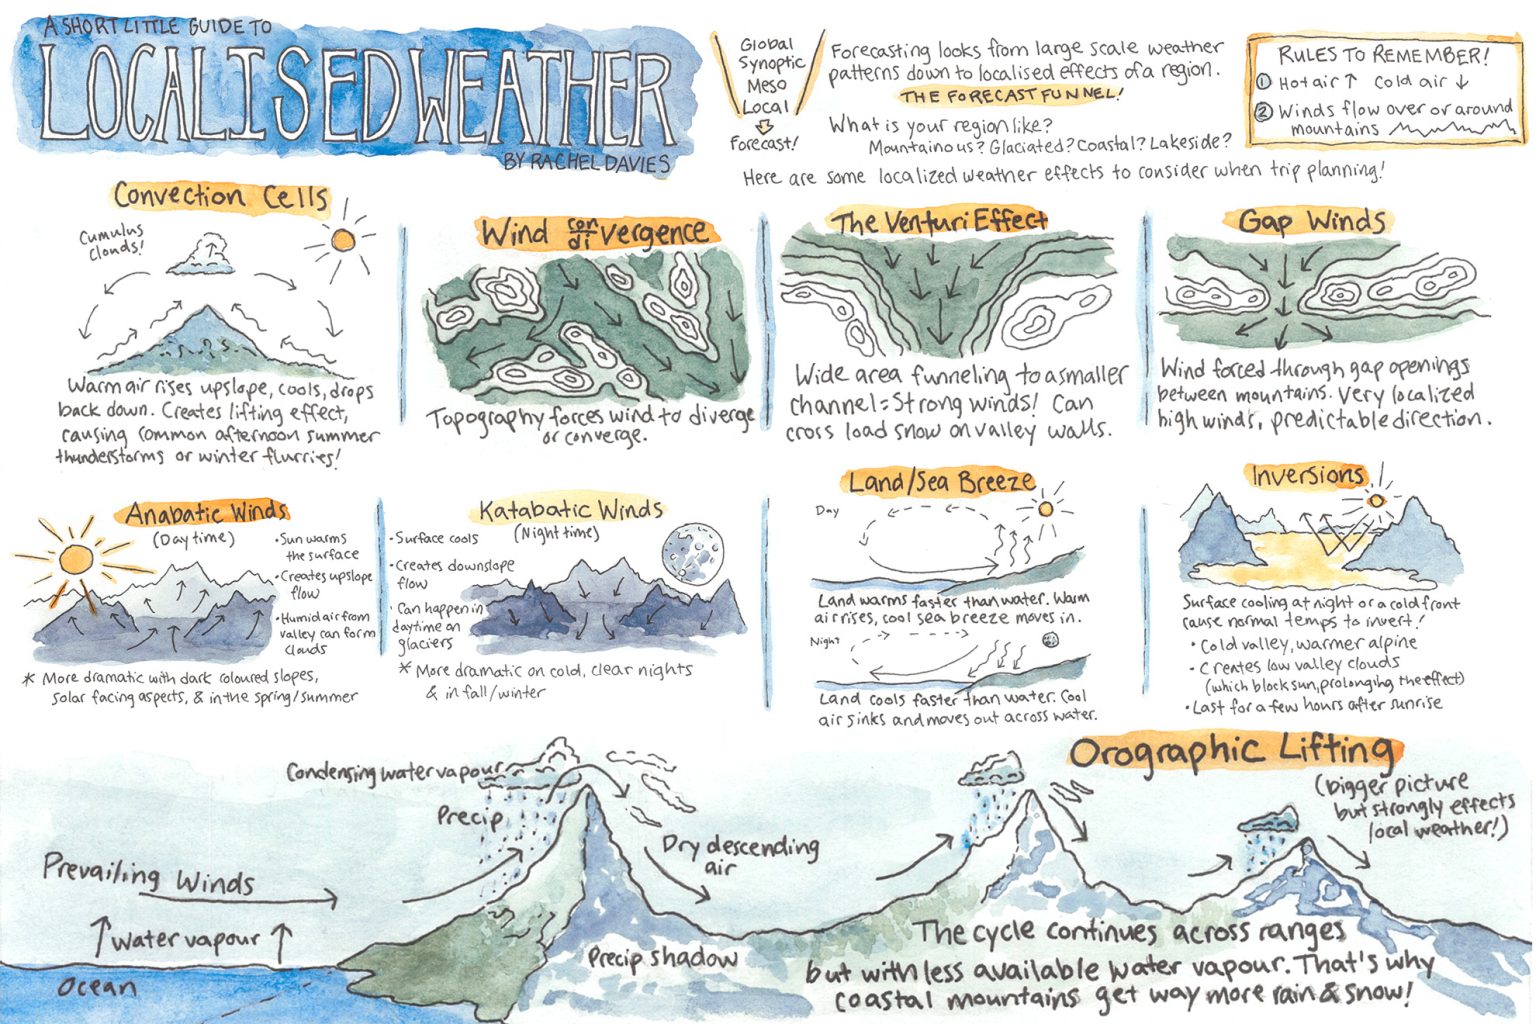 A SHORT LITTLE GUIDE TO
LOCALISED WEATHER
BY RACHEL DAVIES
Global
Synoptic
Meso
Local
Forecast!
Forecasting looks from large scale weather
patterns down to localised effects of a region.
THE FORECAST FUNNEL!
What is your region like?
Mountainous? Glaciated? Coastal? Lakeside?
Here are some localized weather effects to consider when trip planning!
RULES TO REMEMBER!
① Hot air ↑ Cold air ↓
② Winds flow over or around
mountains
Convection Cells
Cumulus
clouds!
Warm air rises upslope, cools, drops
back down. Creates lifting effect,
causing common afternoon summer
thunderstorms or winter flurries!
Wind con/di vergence
Topography forces wind to diverge
or converge.
The Venturi Effect
Wide area funneling to a smaller
channel = Strong winds! Can
cross load snow on valley walls.
Gap Winds
Wind forced through gap openings
between mountains. Very localized
high winds, predictable direction.
Anabatic Winds
(Day time)
• Sun warms
the surface
• Creates upslope
flow
• Humid air from
valley can form
clouds
* More dramatic with dark coloured slopes,
solar facing aspects, & in the spring/summer
Katabatic Winds
(Night time)
• Surface cools
• Creates downslope
flow
• Can happen in
daytime on
glaciers
* More dramatic on cold, clear nights
& in fall/winter
Land/Sea Breeze
Day
Land warms faster than water. Warm
air rises, cool sea breeze moves in.
Night
Land cools faster than water. Cool
air sinks and moves out across water.
Inversions
Surface cooling at night or a cold front
cause normal temps to invert!
• Cold valley, warmer alpine
• Creates low valley clouds
(which block sun, prolonging the effect)
• Last for a few hours after sunrise
Orographic Lifting
(bigger picture
but strongly effects
local weather!)
Condensing water vapour
Precip
Prevailing Winds
Dry descending
air
Water vapour
Ocean
Precip shadow
The cycle continues across ranges
but with less available water vapour. That's why
coastal mountains get way more rain & snow!